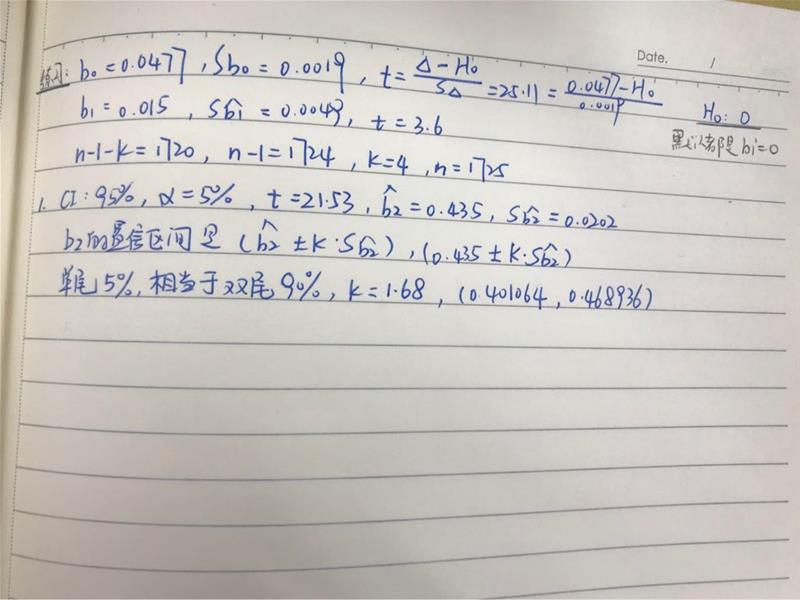 Date. /
练习: b₀ = 0.0477, Sb₀ = 0.0019, t = (Δ - H₀)/SΔ = 25.11 = (0.0477 - H₀)/0.0019
H₀: 0
b₁ = 0.015, Sb̂₁ = 0.0049, t = 3.6
默认都是 bi = 0
n-1-k = 1720, n-1 = 1724, k = 4, n = 1725
1. CI: 95%, α = 5%, t = 21.53, b̂₂ = 0.435, Sb̂₂ = 0.0202
b₂的置信区间是 (b̂₂ ± K·Sb̂₂), (0.435 ± K·Sb̂₂)
单尾5%, 相当于双尾90%, k = 1.68, (0.401064, 0.468936)